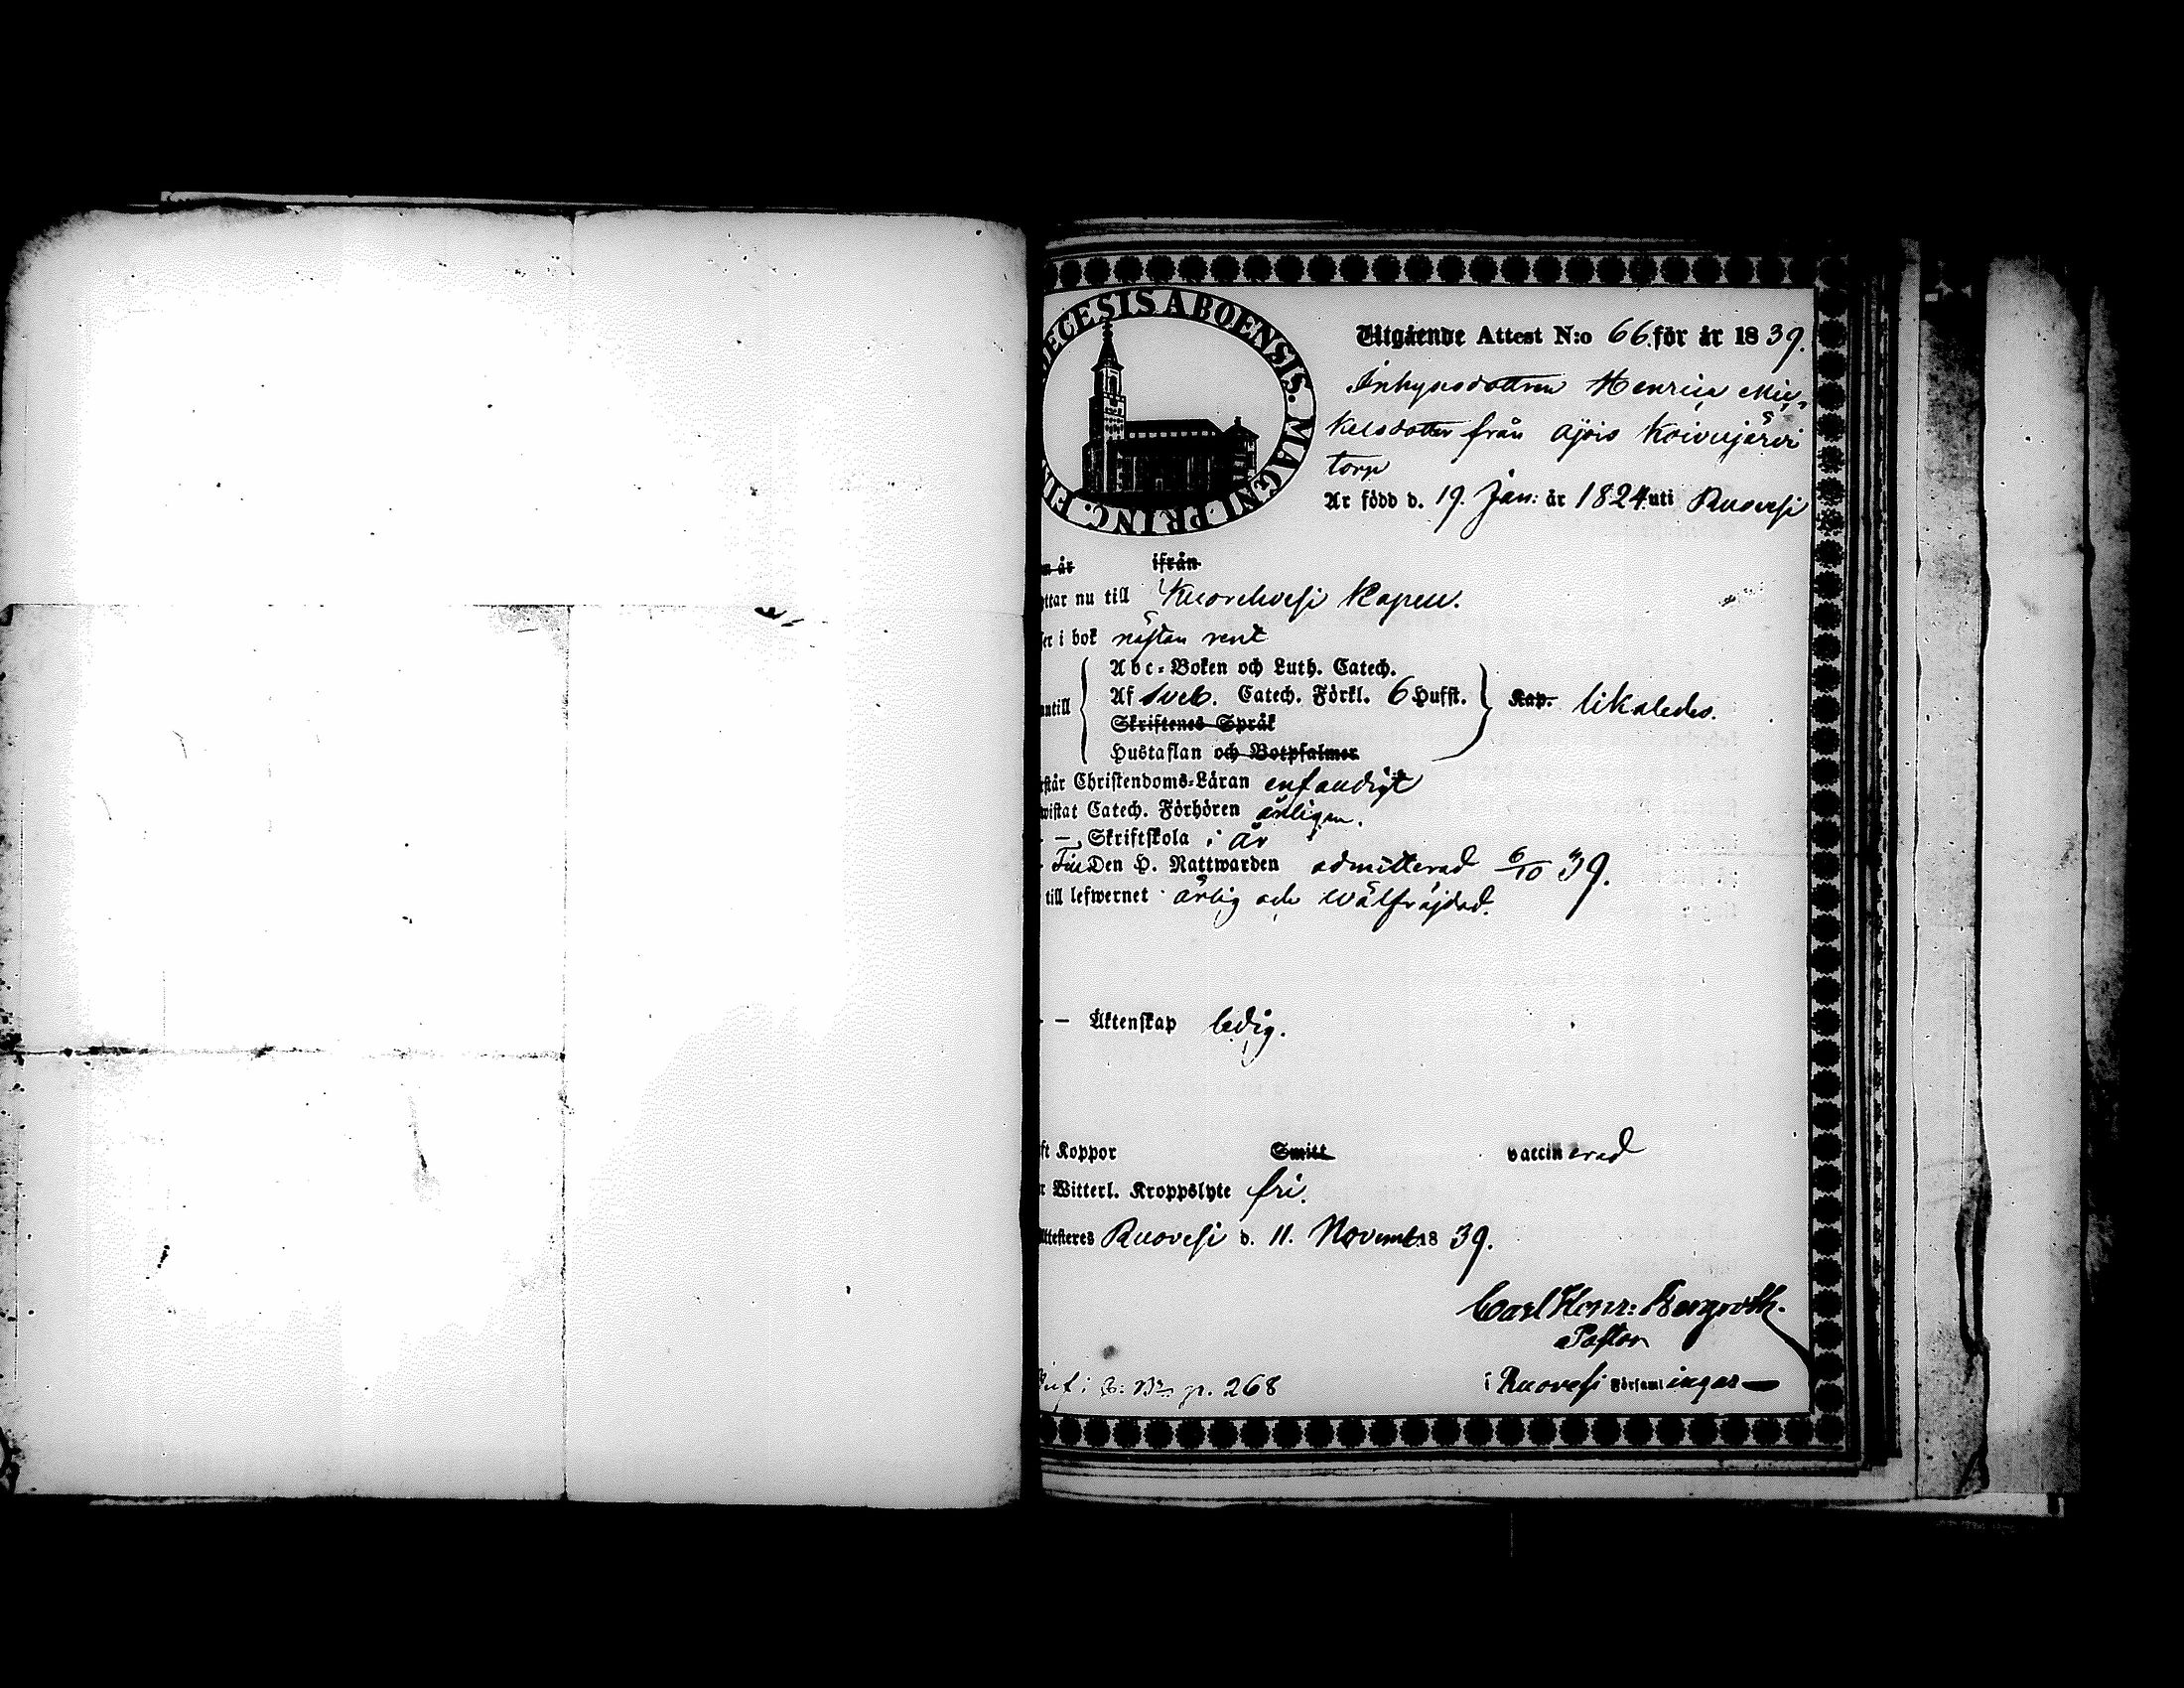 DIECESIS ABOENSIS. MAGNI PRINC. FIN
Utgående Attest N:o 66. för år 1839.
Inhysesdottren Henrica Mic-
kelsdotter från Ajois Koivujärvi
torp
Är född d. 19. Jan: år 1824 uti Ruovesi
år ifrån
ttar nu till Kuorehvesi Kapell.
ser i bok nästan rent
nntill
Abc-Boken och Luth. Catech.
Af Sveb. Catech. Förkl. 6 Hufst.
Skriftenes Språk
Hustaflan och Botpsalmer
Kap. likaledes.
rstår Christendoms-Läran enfaldigt
wistat Catech. Förhören årligen.
— Skriftskola i år
- Till Den H. Nattwarden admitterad 6/10 39.
till lefwernet ärlig och wälfräjdad.
- — Äktenskap ledig.
ft Koppor Smitt vaccinerad
r Witterl. Kroppslyte fri.
Attesteres Ruovesi d. 11. Novemb. 1839.
Carl Henr: Bergroth.
Pastor
i Ruovesi Församlingar
p. 268